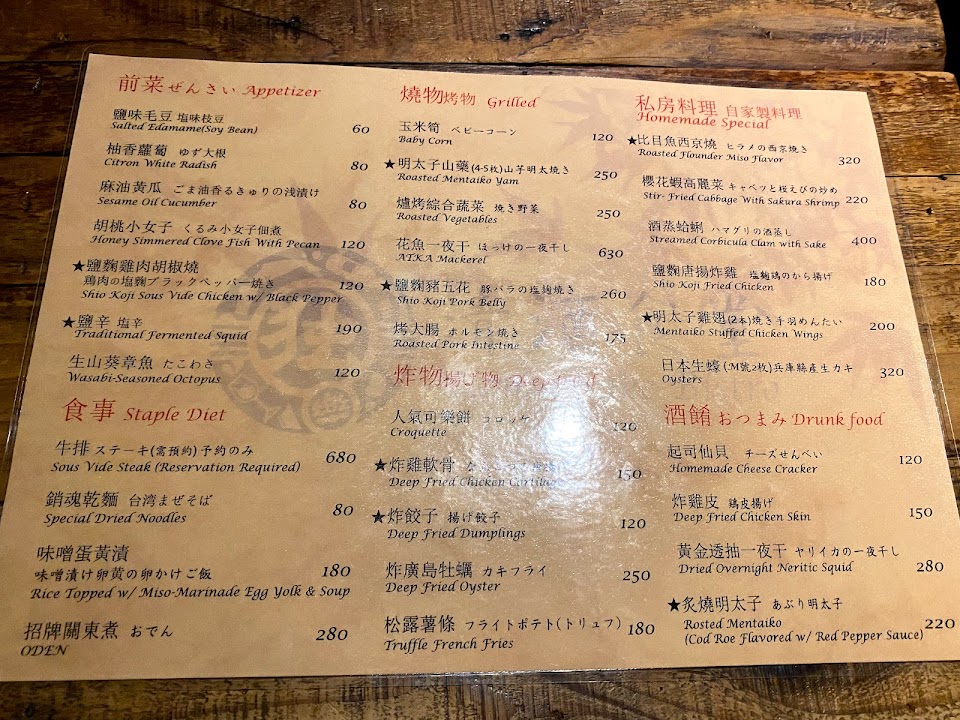 前菜 ぜんさい Appetizer
鹽味毛豆 塩味枝豆
Salted Edamame(Soy Bean) 60
柚香蘿蔔 ゆず大根
Citron White Radish 80
麻油黃瓜 ごま油香るきゅりの浅漬け
Sesame Oil Cucumber 80
胡桃小女子 くるみ小女子佃煮
Honey Simmered Clove Fish With Pecan 120
★鹽麴雞肉胡椒燒
鶏肉の塩麴ブラックペッパー焼き 120
Shio Koji Sous Vide Chicken w/ Black Pepper
★鹽辛 塩辛 190
Traditional Fermented Squid
生山葵章魚 たこわさ
Wasabi-Seasoned Octopus 120
食事 Staple Diet
牛排 ステーキ(需預約)予約のみ 680
Sous Vide Steak (Reservation Required)
銷魂乾麵 台湾まぜそば 80
Special Dried Noodles
味噌蛋黃漬
味噌漬け卵黄の卵かけご飯 180
Rice Topped w/ Miso-Marinade Egg Yolk & Soup
招牌關東煮 おでん 280
ODEN
燒物烤物 Grilled
玉米筍 ベビーコーン 120
Baby Corn
★明太子山藥(4-5枚)山芋明太焼き 250
Roasted Mentaiko Yam
爐烤綜合蔬菜 焼き野菜 250
Roasted Vegetables
花魚一夜干 ほっけの一夜干し 630
ATKA Mackerel
★鹽麴豬五花 豚バラの塩麹焼き 260
Shio Koji Pork Belly
烤大腸 ホルモン焼き 175
Roasted Pork Intestine
炸物揚げ物
人氣可樂餅 コロッケ 120
Croquette
★炸雞軟骨 150
Deep Fried Chicken Cartilage
★炸餃子 揚げ餃子 120
Deep Fried Dumplings
炸廣島牡蠣 カキフライ 250
Deep Fried Oyster
松露薯條 フライトポテト(トリュフ) 180
Truffle French Fries
私房料理 自家製料理
Homemade Special
★比目魚西京燒 ヒラメの西京焼き 320
Roasted Flounder Miso Flavor
櫻花蝦高麗菜 キャベツと桜えびの炒め
Stir- Fried Cabbage With Sakura Shrimp 220
酒蒸蛤蜊 ハマグリの酒蒸し 400
Streamed Corbicula Clam with Sake
鹽麴唐揚炸雞 塩麹鶏のから揚げ 180
Shio Koji Fried Chicken
★明太子雞翅(2本)焼き手羽めんたい 200
Mentaiko Stuffed Chicken Wings
日本生蠔 (M號2枚)兵庫縣產生カキ 320
Oysters
酒餚 おつまみ Drunk food
起司仙貝 チーズせんべい 120
Homemade Cheese Cracker
炸雞皮 鶏皮揚げ 150
Deep Fried Chicken Skin
黃金透抽一夜干 ヤリイカの一夜干し 280
Dried Overnight Neritic Squid
★炙燒明太子 あぶり明太子
Rosted Mentaiko 220
(Cod Roe Flavored w/ Red Pepper Sauce)